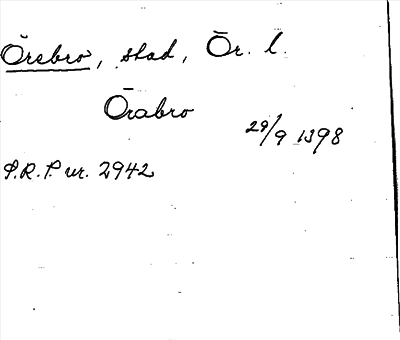 Örebro, stad, Ör. l.
Örabro
29/9 1398
P.R.P. nr. 2942